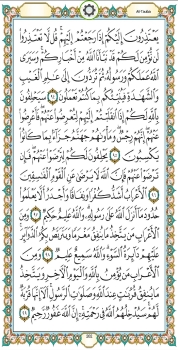 At-Tauba
يَعْتَذِرُونَ إِلَيْكُمْ إِذَا رَجَعْتُمْ إِلَيْهِمْ قُل لَّا تَعْتَذِرُوا۟
لَن نُّؤْمِنَ لَكُمْ قَدْ نَبَّأَنَا ٱللَّهُ مِنْ أَخْبَارِكُمْ وَسَيَرَى
ٱللَّهُ عَمَلَكُمْ وَرَسُولُهُۥ ثُمَّ تُرَدُّونَ إِلَىٰ عَٰلِمِ ٱلْغَيْبِ
وَٱلشَّهَٰدَةِ فَيُنَبِّئُكُم بِمَا كُنتُمْ تَعْمَلُونَ ٩٤ سَيَحْلِفُونَ
بِٱللَّهِ لَكُمْ إِذَا ٱنقَلَبْتُمْ إِلَيْهِمْ لِتُعْرِضُوا۟ عَنْهُمْ فَأَعْرِضُوا۟
عَنْهُمْ إِنَّهُمْ رِجْسٌ وَمَأْوَىٰهُمْ جَهَنَّمُ جَزَآءًۢ بِمَا كَانُوا۟
يَكْسِبُونَ ٩٥ يَحْلِفُونَ لَكُمْ لِتَرْضَوْا۟ عَنْهُمْ فَإِن
تَرْضَوْا۟ عَنْهُمْ فَإِنَّ ٱللَّهَ لَا يَرْضَىٰ عَنِ ٱلْقَوْمِ ٱلْفَٰسِقِينَ
٩٦ ٱلْأَعْرَابُ أَشَدُّ كُفْرًا وَنِفَاقًا وَأَجْدَرُ أَلَّا يَعْلَمُوا۟
حُدُودَ مَآ أَنزَلَ ٱللَّهُ عَلَىٰ رَسُولِهِۦ وَٱللَّهُ عَلِيمٌ حَكِيمٌ ٩٧ وَمِنَ
ٱلْأَعْرَابِ مَن يَتَّخِذُ مَا يُنفِقُ مَغْرَمًا وَيَتَرَبَّصُ بِكُمُ ٱلدَّوَآئِرَ
عَلَيْهِمْ دَآئِرَةُ ٱلسَّوْءِ وَٱللَّهُ سَمِيعٌ عَلِيمٌ ٩٨ وَمِنَ
ٱلْأَعْرَابِ مَن يُؤْمِنُ بِٱللَّهِ وَٱلْيَوْمِ ٱلْءَاخِرِ وَيَتَّخِذُ
مَا يُنفِقُ قُرُبَٰتٍ عِندَ ٱللَّهِ وَصَلَوَٰتِ ٱلرَّسُولِ أَلَآ إِنَّهَا قُرْبَةٌ
لَّهُمْ سَيُدْخِلُهُمُ ٱللَّهُ فِى رَحْمَتِهِۦٓ إِنَّ ٱللَّهَ غَفُورٌ رَّحِيمٌ ٩٩